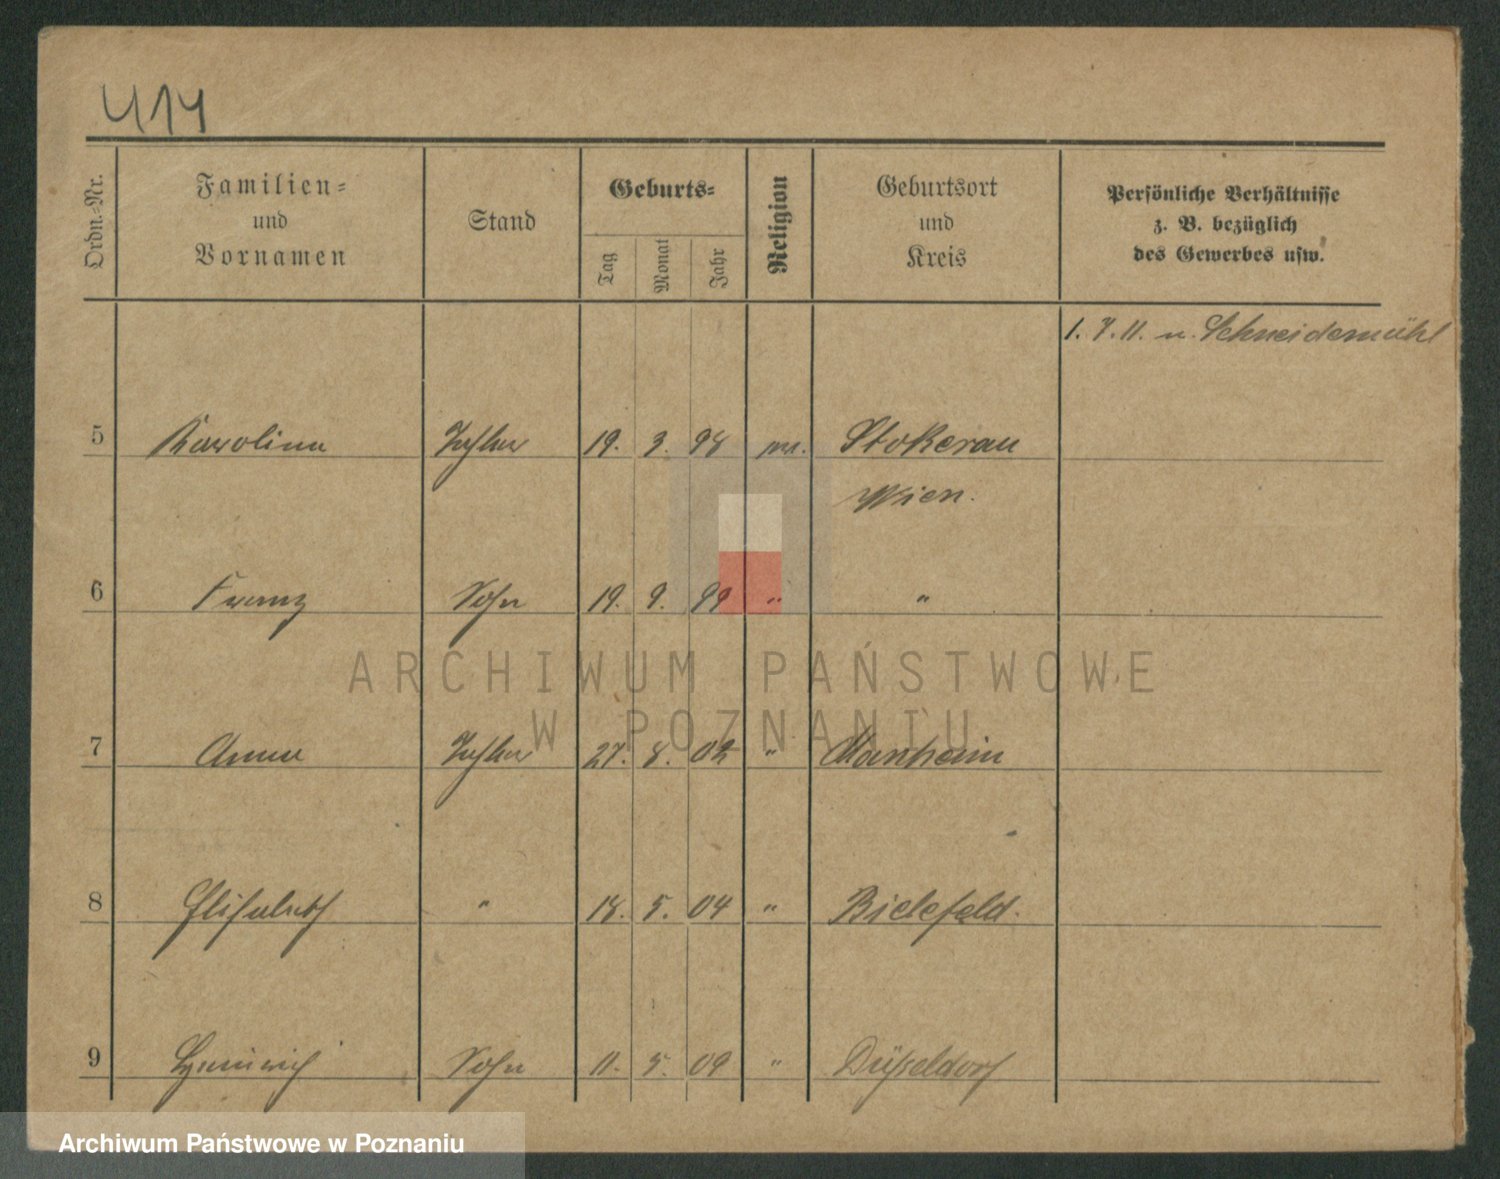 414
Ordn.-Nr.
Familien-
und
Vornamen
Stand
Geburts-
Tag
Monat
Jahr
Religion
Geburtsort
und
Kreis
Persönliche Verhältnisse
z. B. bezüglich
des Gewerbes usw.
1. 7. 11. n. Schneidemühl
5 Karolina Tochter 19. 3. 98 Stokerau
Wien.
6 Franz Sohn 19. 9. 99 " "
7 Anna Tochter 27. 8. 02 " Manheim
8 Elisabeth " 18. 5. 04 " Bielefeld.
9 Heinrich Sohn 11. 5. 09 " Düsseldorf
ARCHIWUM PAŃSTWOWE
W POZNANIU
Archiwum Państwowe w Poznaniu